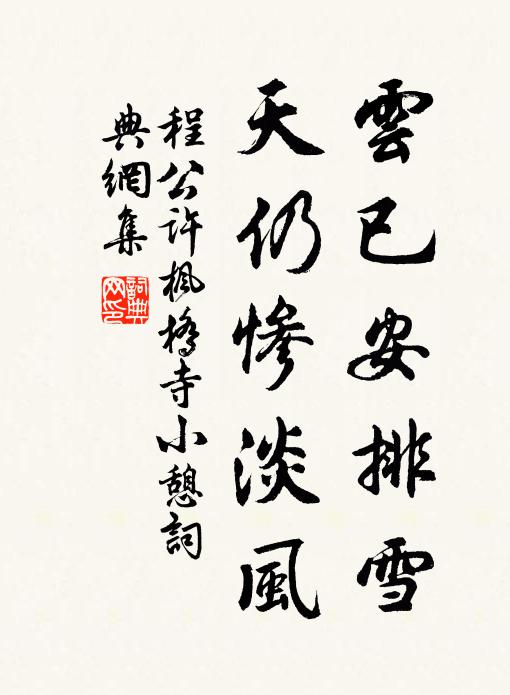 雲已安排雪
天仍慘淡風
程公許楓橋寺小憩詞
典網集
詞典網印